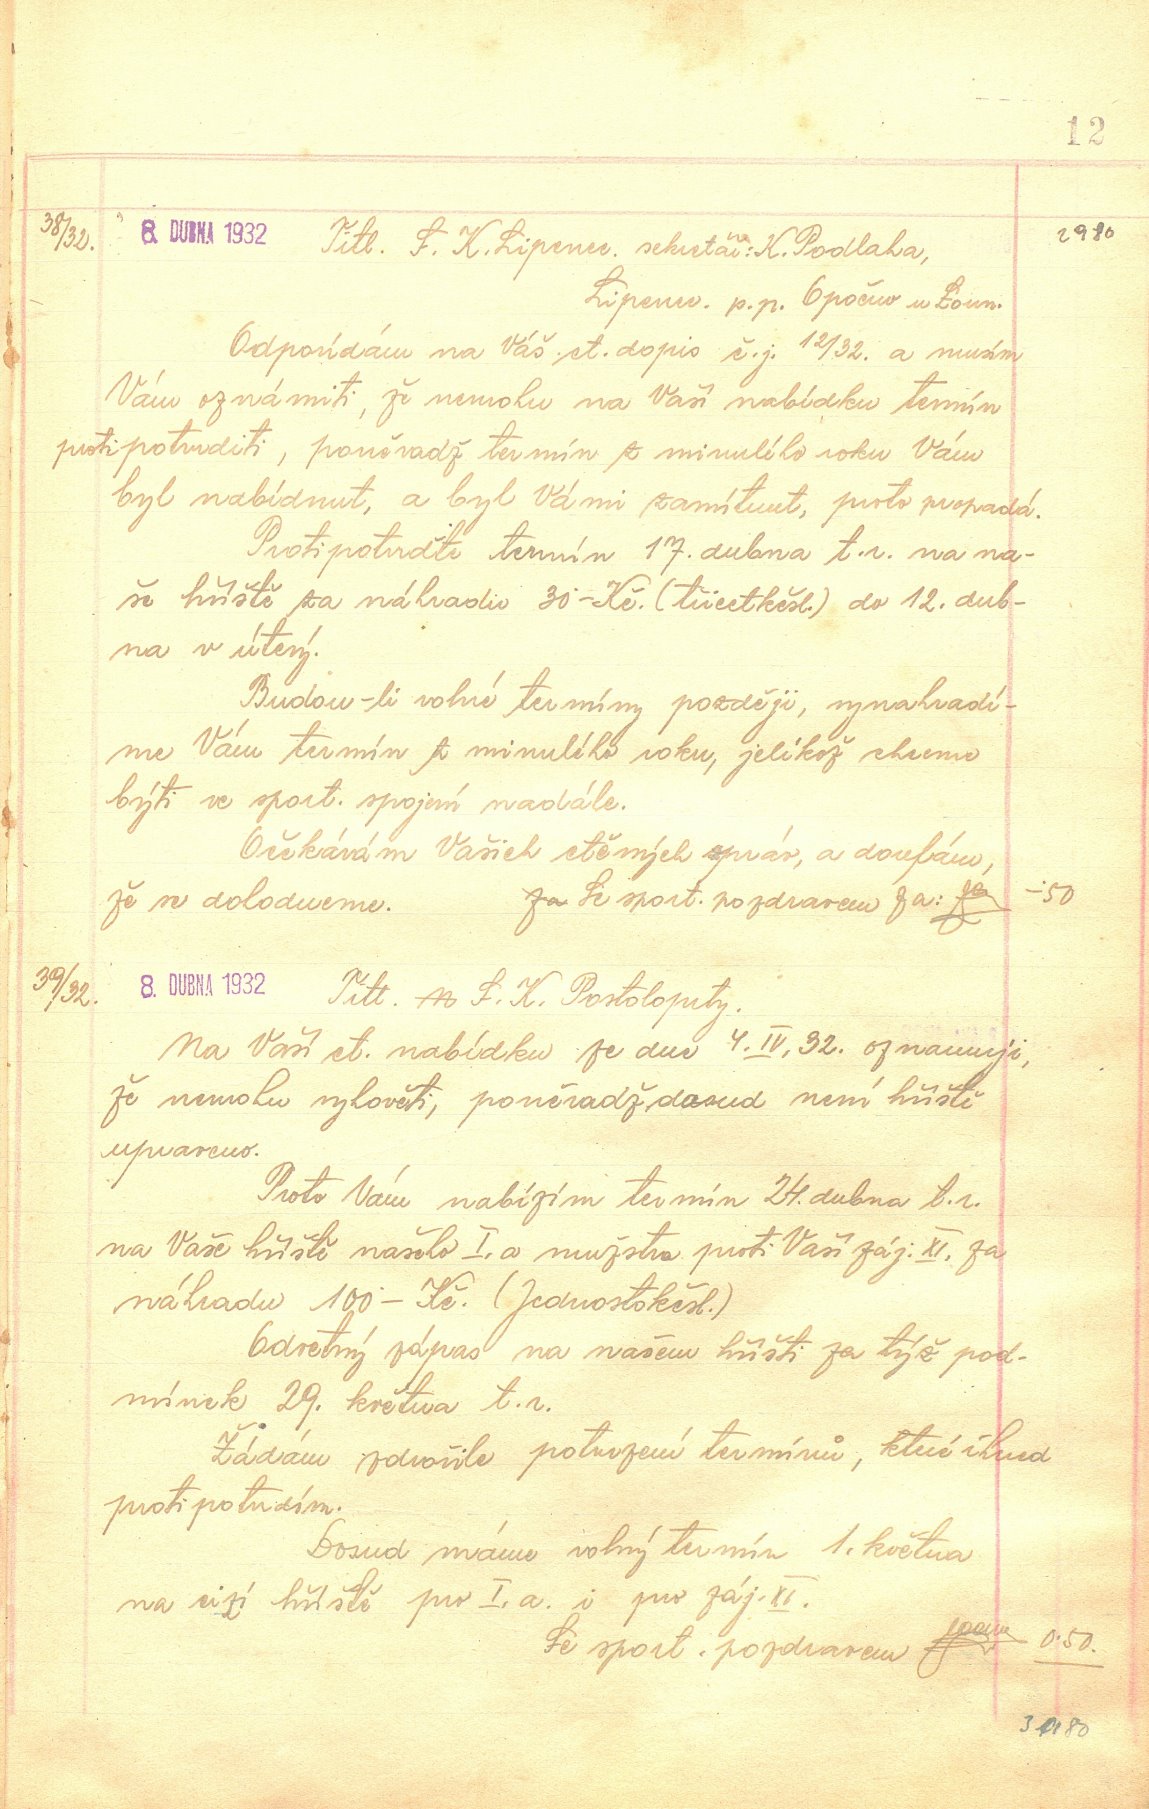 12
38/32. 8. DUBNA 1932 Titl. S. K. Lipenec. sekretář: K. Podlaha, 29 80
Lipenec. p. p. Opočno u Loun.
Odpovídám na Váš ct. dopis č. j. 12/32. a musím
Vám oznámiti, že nemohu na Vaší nabídku termín
protipotvrditi, poněvadž termín z minulého roku Vám
byl nabídnut, a byl Vámi zamítnut, proto propadá.
Protipotvrďte termín 17. dubna t. r. na na-
še hřiště za náhradu 30·– Kč. (třicetkčsl.) do 12. dub-
na v úterý.
Budou-li volné termíny později, vynahradí-
me Vám termín z minulého roku, jelikož chceme
býti ve sport. spojení nadále.
Očekávám Vašich ctěných zpráv, a doufám,
že se dohodneme. za Se sport. pozdravem za: –·50
39/32. 8. DUBNA 1932 Titl. S. K. Postoloprty.
Na Vaší ct. nabídku ze dne 4. IV. 32. oznamuji,
že nemohu vyhověti, poněvadž dosud není hřiště
upraveno.
Proto Vám nabízím termín 24. dubna t. r.
na Vaše hřiště našeho I. a mužstva proti Vaší záj. XI. za
náhradu 100·– Kč. (Jednostokčsl.)
Odvetný zápas na našem hřišti za týž pod-
mínek 29. května t. r.
Žádám zdvořile potvrzení termínů, které ihned
protipotvrdím.
Dosud máme volný termín 1. května
na cizí hřiště pro I. a. i pro záj. XI.
Se sport. pozdravem 0·50.
80